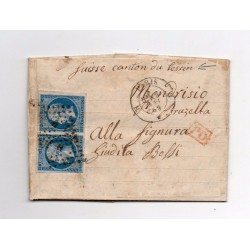 Suisse canton du Tessin
Mendrisio
Bruzella
Alla Signura
Giudita Bossi
PARIS
PD